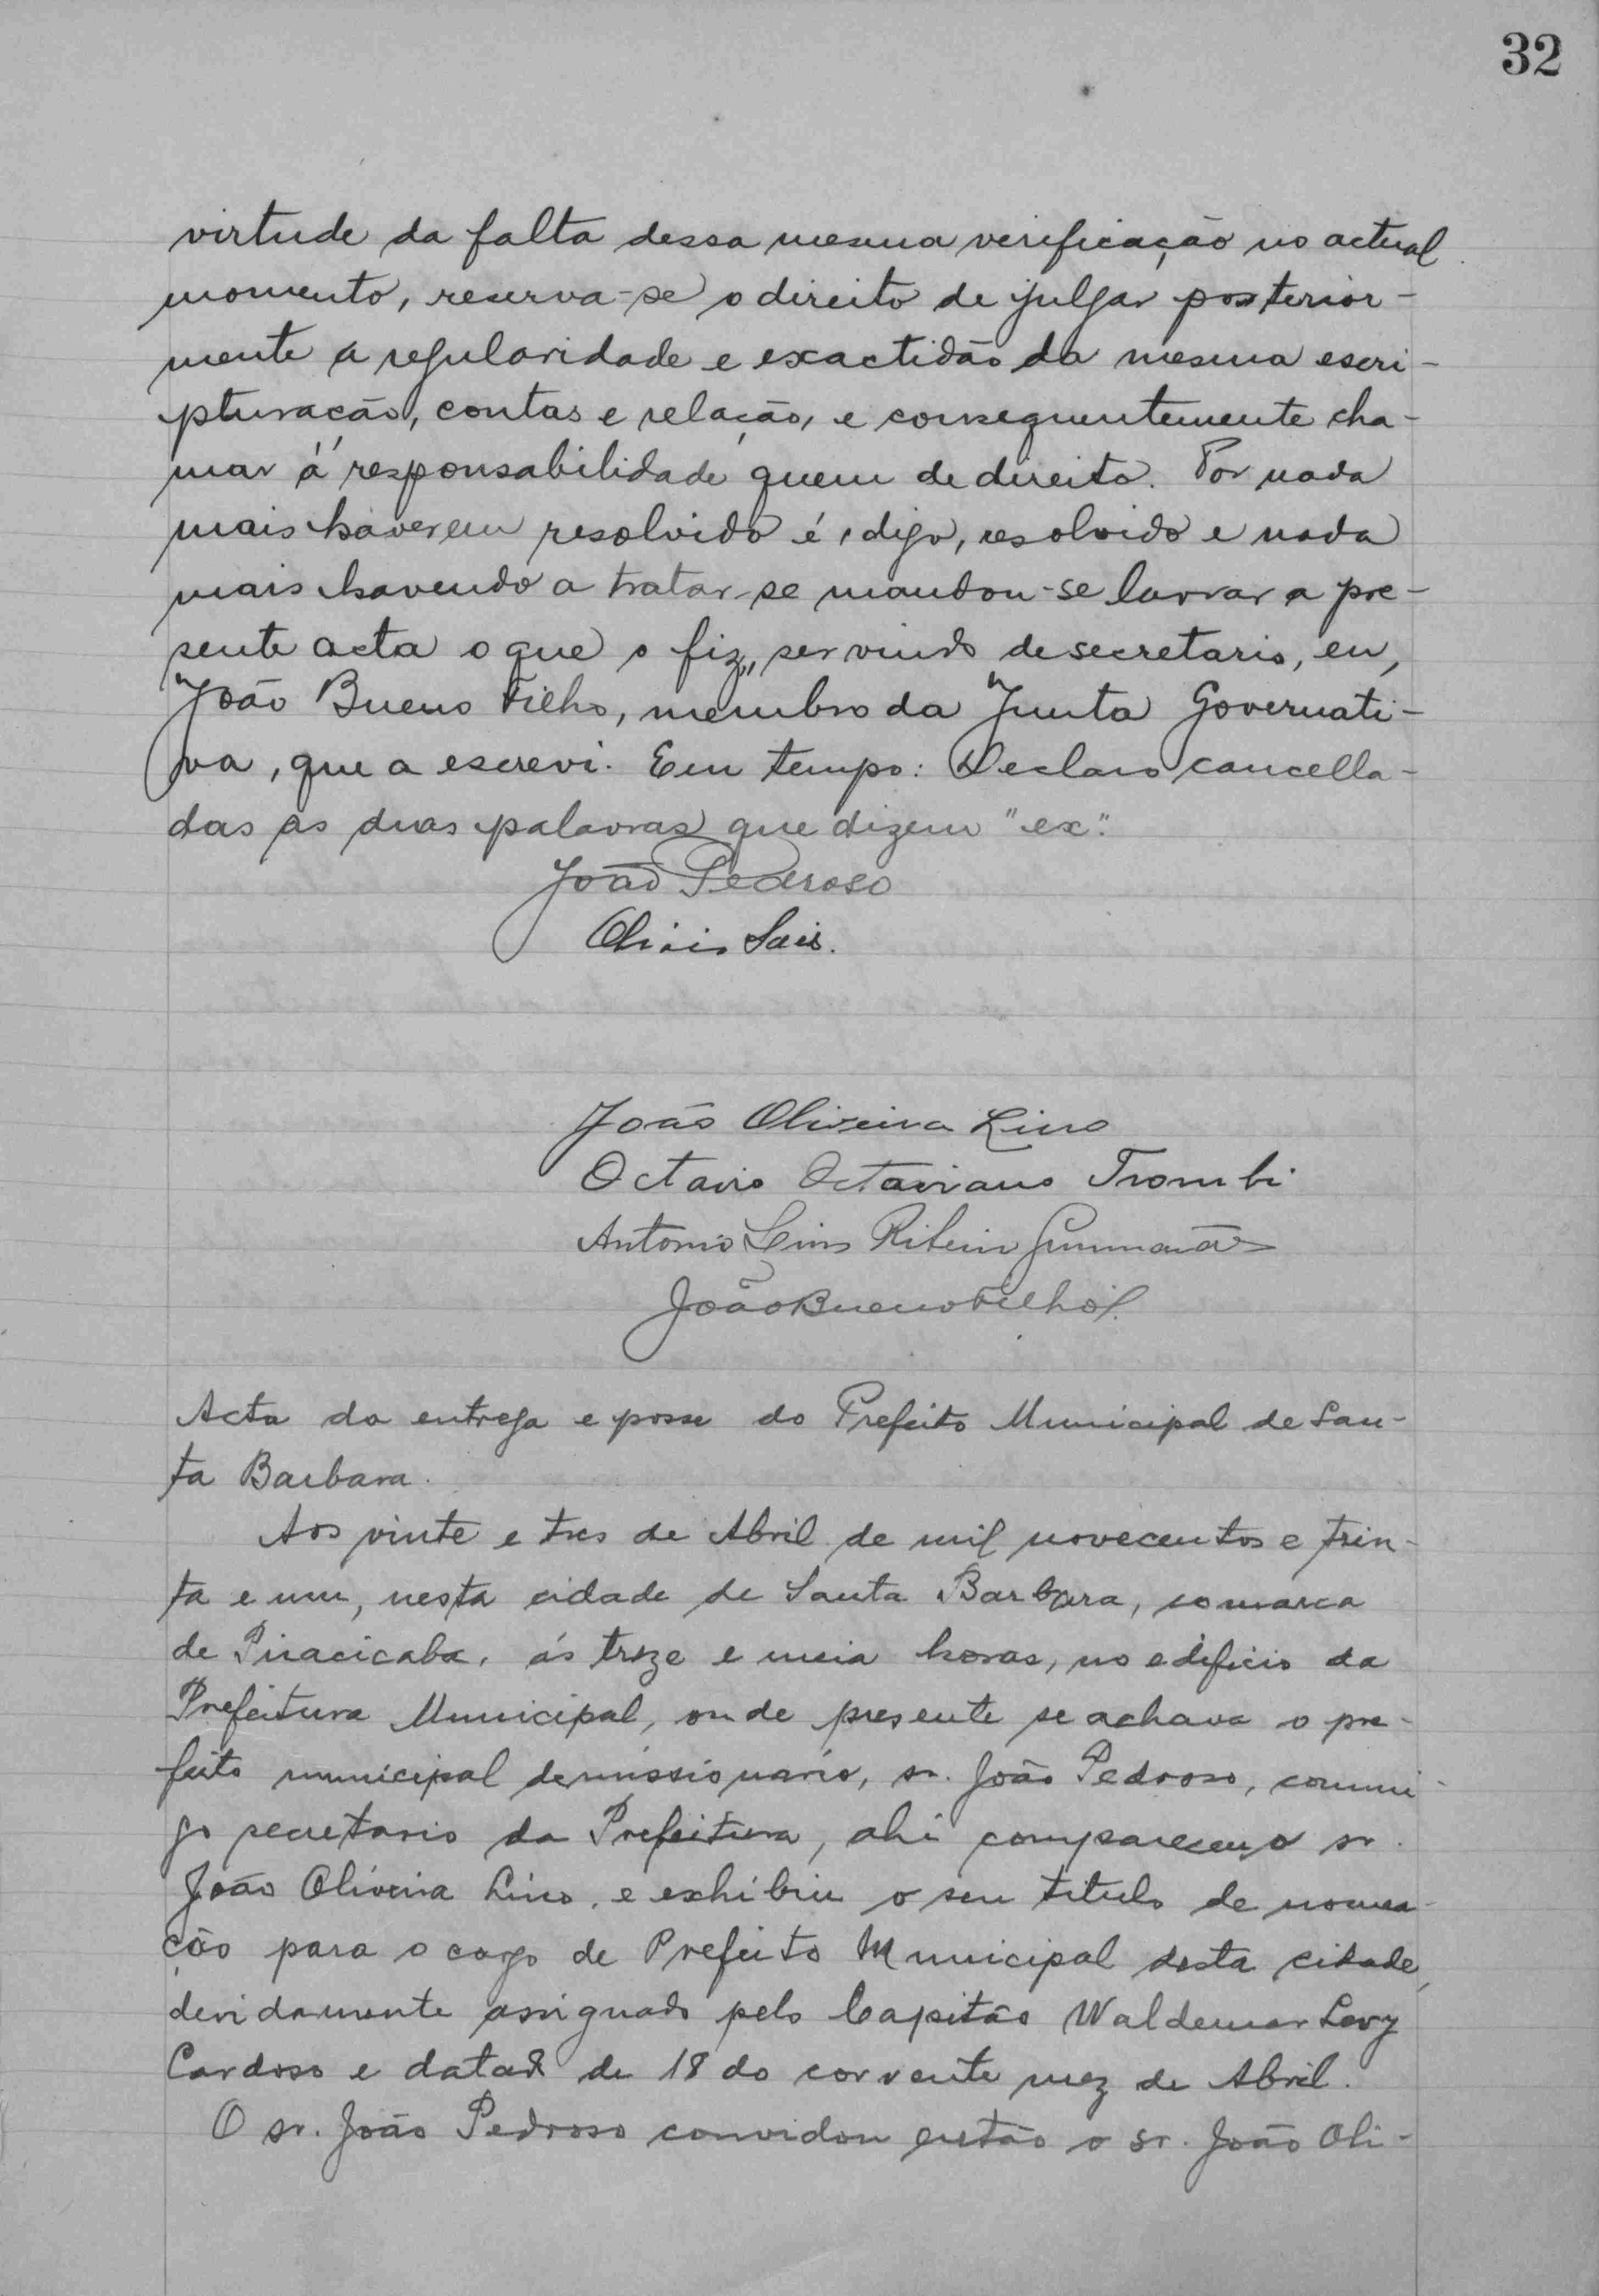 32
virtude da falta dessa mesma verificação no actual
momento, reserva-se o direito de julgar posterior-
mente a regularidade e exactidão da mesma escri-
pturacão, contas e relação, e consequentemente cha-
mar á responsabilidade quem de direito. Por nada
mais haverem resolvido é, digo, resolvido e nada
mais havendo a tratar-se mandou-se lavrar a pre-
sente acta o que o fiz, servindo de secretario, eu,
João Bueno Filho, membro da Junta Governati-
va, que a escrevi. Em tempo: Declaro cancella-
das as duas palavras que dizem "ex".
João Pedroso
João Oliveira Lino
Octavio Octaviano Trombi
Antonio Ribeiro Guimarães
João Bueno Filho
Acta da entrega e posse do Prefeito Municipal de San-
ta Barbara.
Aos vinte e tres de Abril de mil novecentos e trin-
ta e um, nesta cidade de Santa Barbara, comarca
de Piracicaba, ás treze e meia horas, no edificio da
Prefeitura Municipal, onde presente se achava o pre-
feito municipal demissionario, sr. João Pedroso, commi-
go secretario da Prefeitura, ahi compareceu o sr.
João Oliveira Lino, e exhibiu o seu titulo de nomea-
ção para o cargo de Prefeito Municipal desta cidade,
devidamente assignado pelo Capitão Waldemar Levy
Cardoso e datado de 18 do corrente mez de Abril.
O sr. João Pedroso convidou então o sr. João Oli-